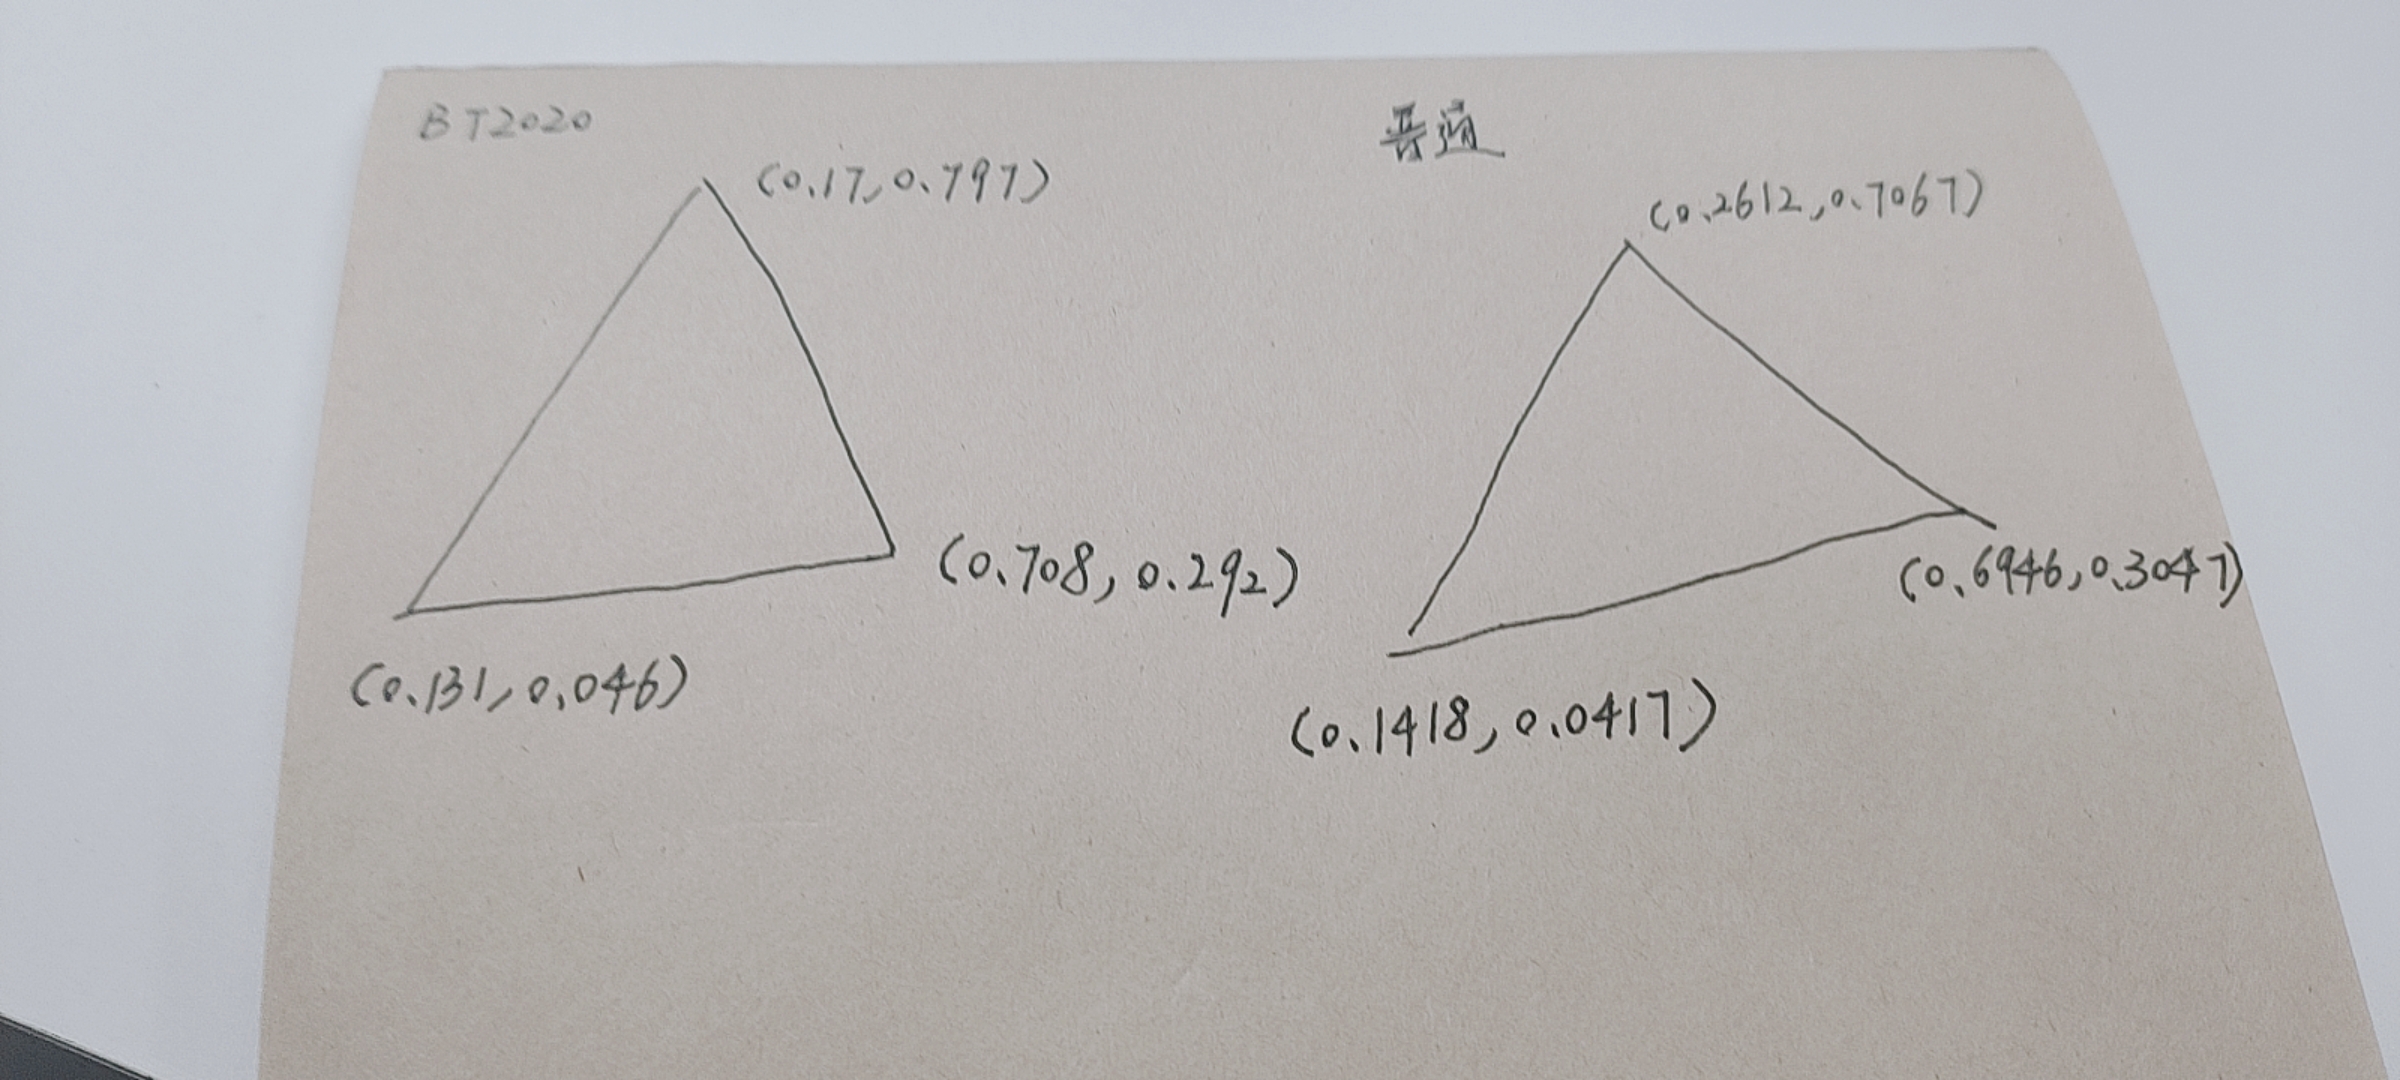 BT2020
(0.17, 0.797)
(0.708, 0.292)
(0.131, 0.046)
普通
(0.2612, 0.7067)
(0.6946, 0.3047)
(0.1418, 0.0417)